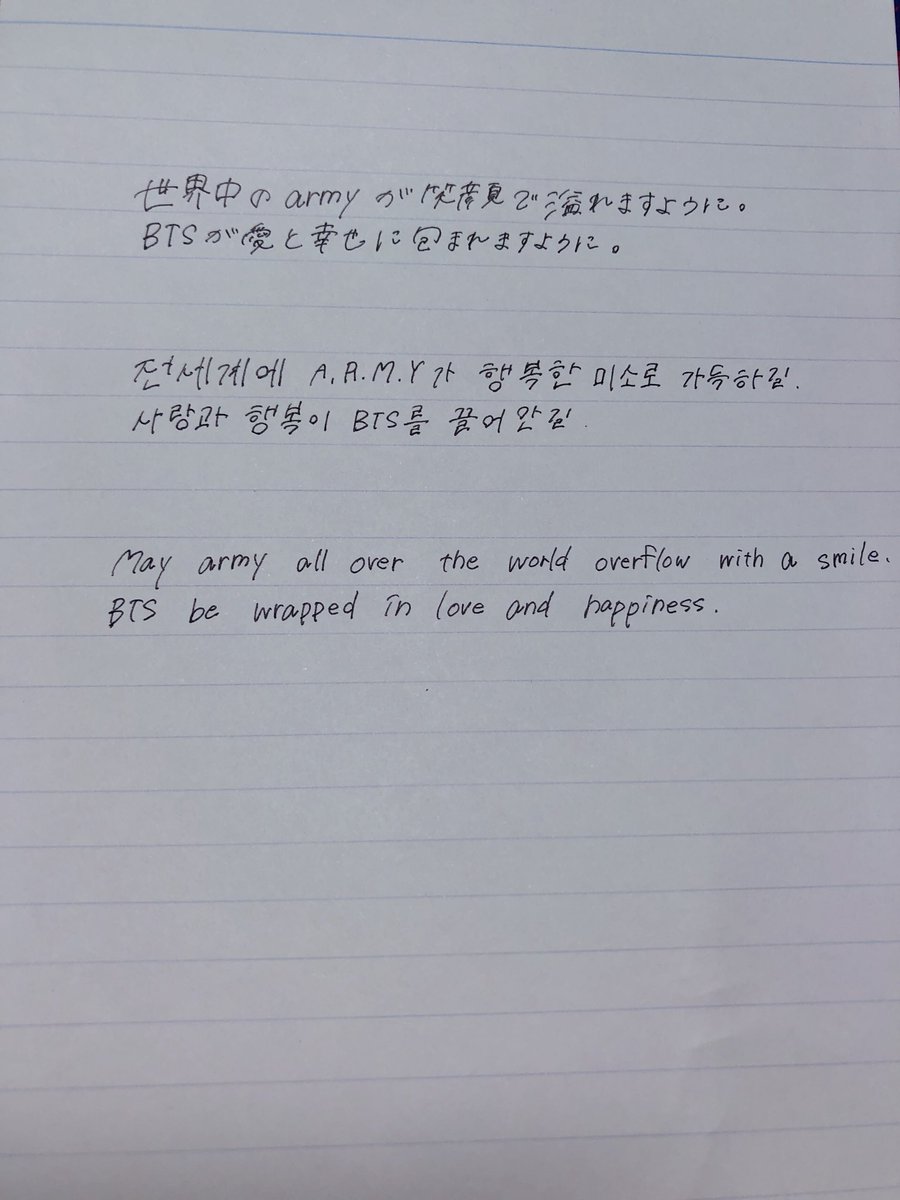 世界中のarmyが笑顔で溢れますように。
BTSが愛と幸せに包まれますように。
전세계에 A.R.M.Y가 행복한 미소로 가득하길.
사랑과 행복이 BTS를 끌어안길.
May army all over the world overflow with a smile.
BTS be wrapped in love and happiness.